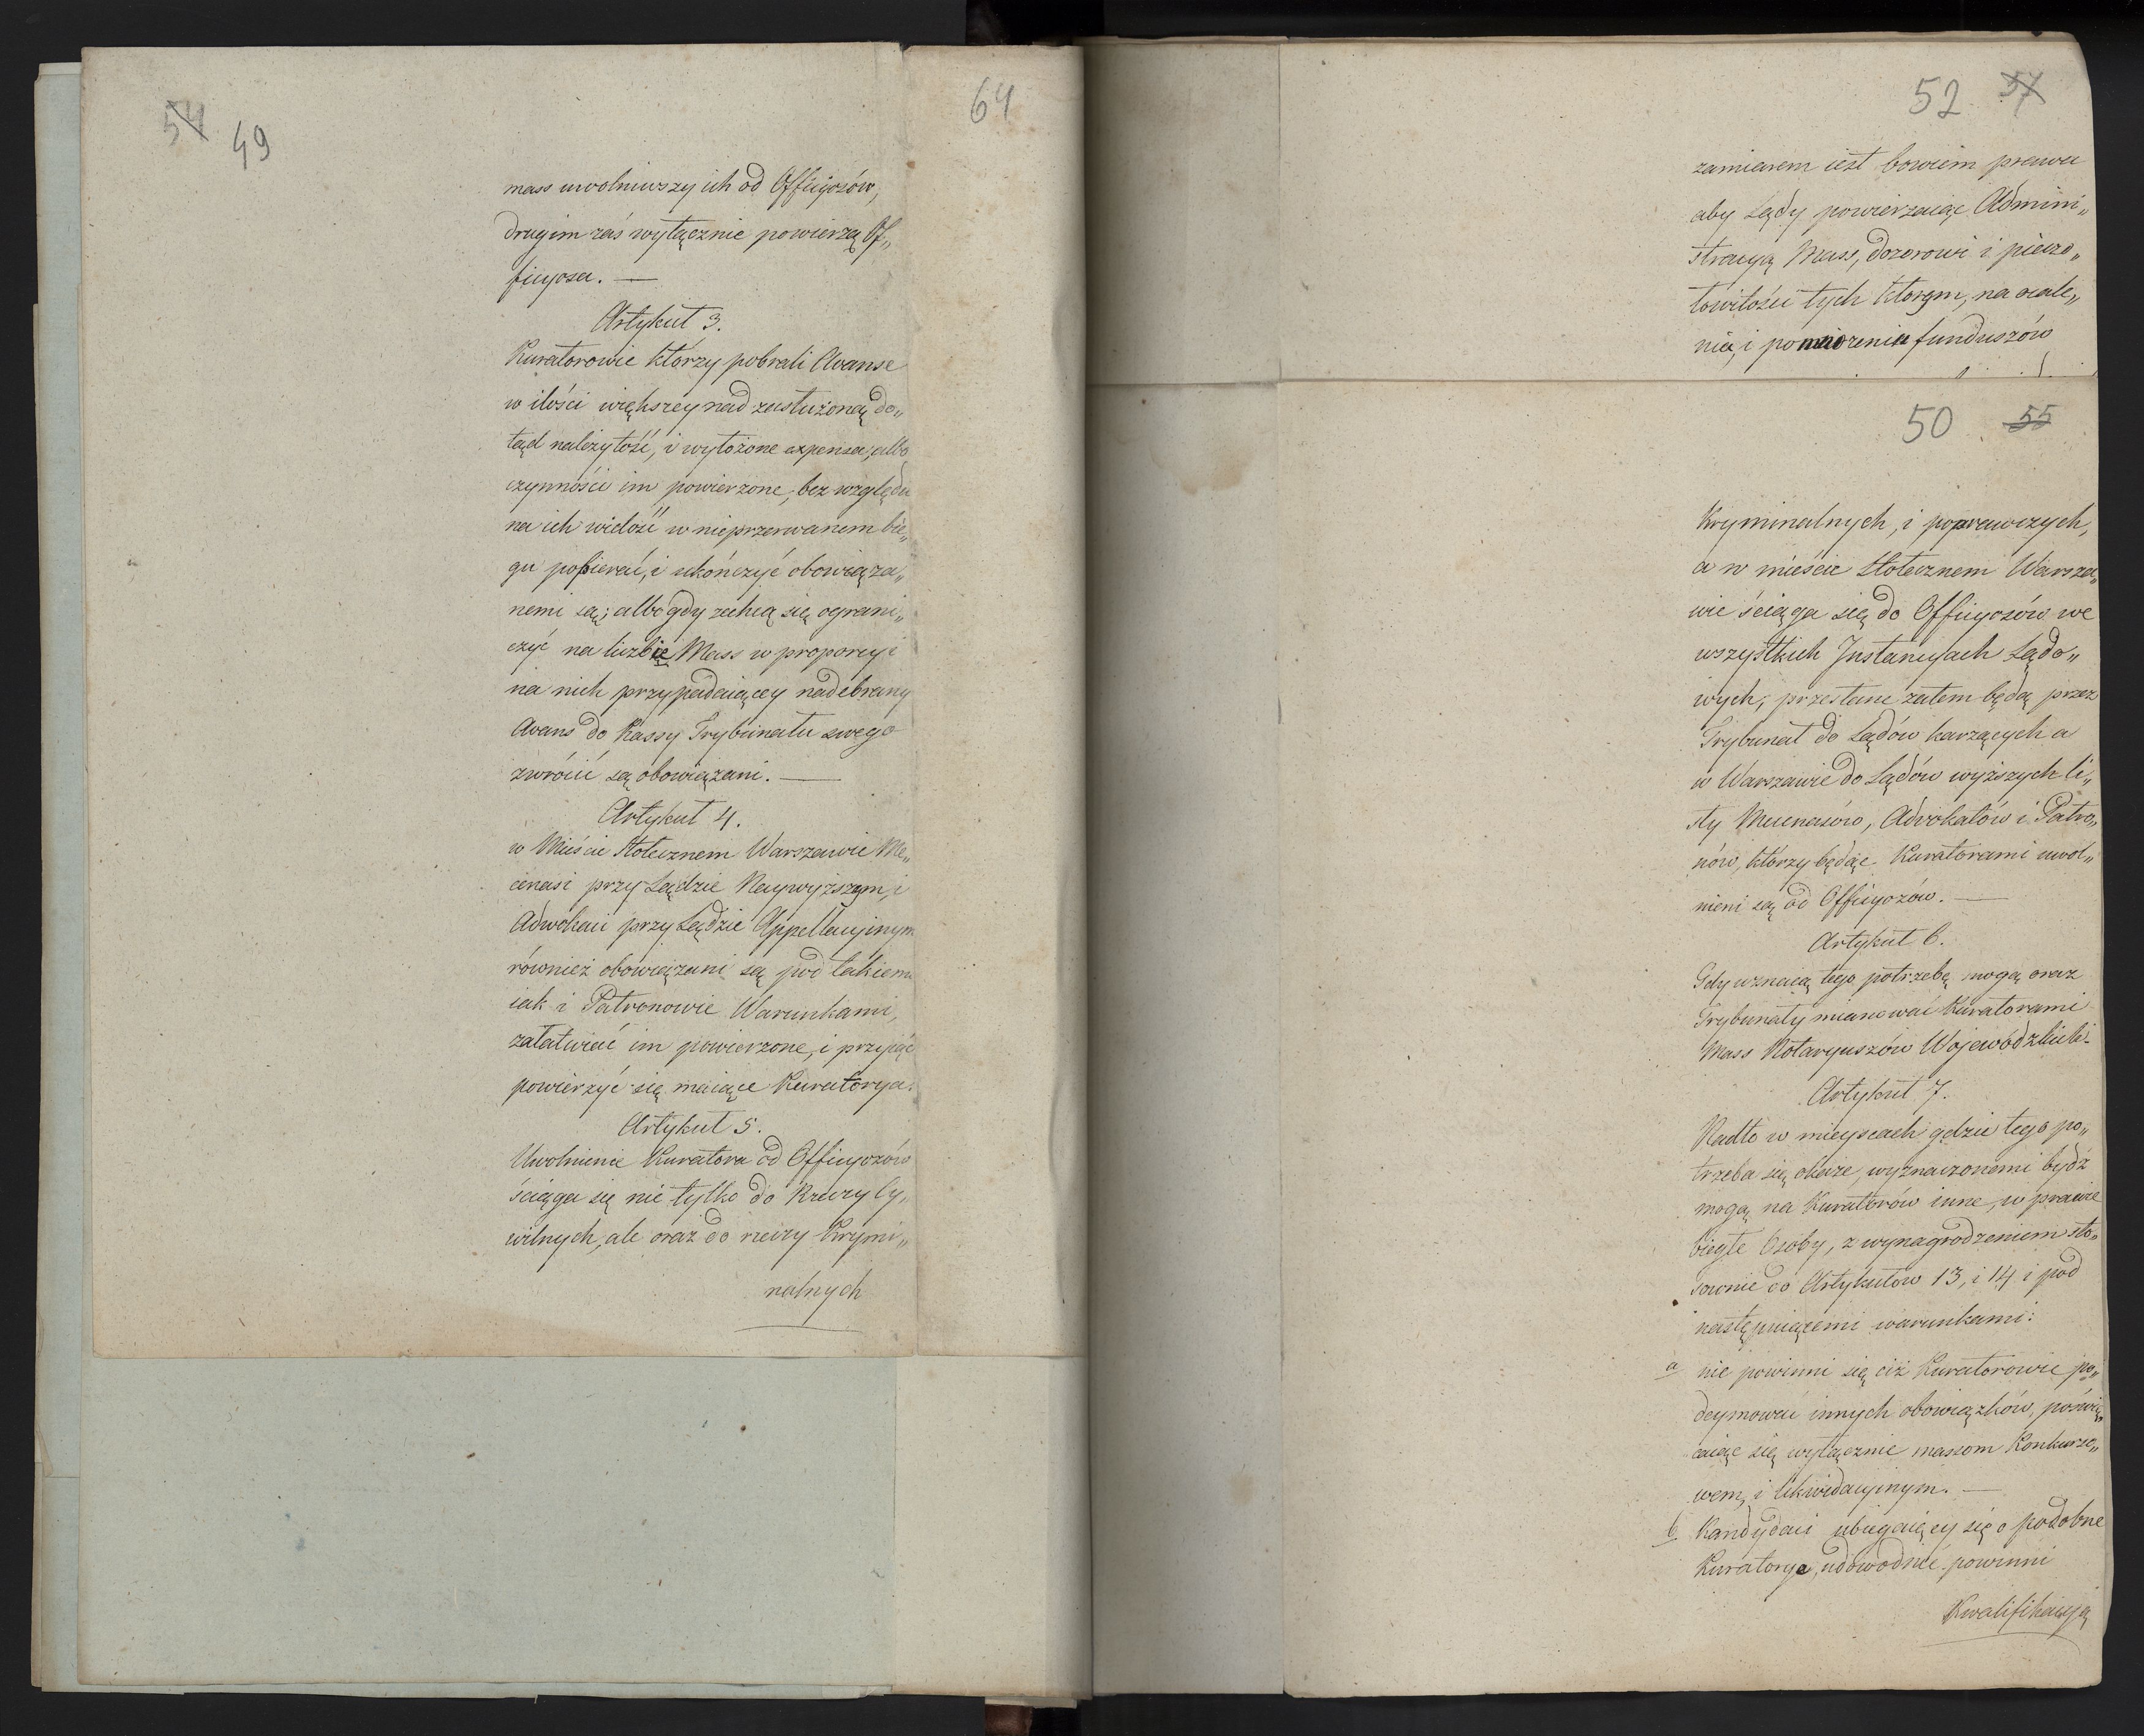 54 49
64
mass uwolniwszy ich od Officyozów,
drugim zaś wyłącznie powierzą Of„
ficyosa. —
Artykuł 3.
Kuratorowie którzy pobrali Avanse
w ilości większey nad zasłużoną do„
tąd należytość, i wyłożone expensa, albo
czynności im powierzone, bez względu
na ich wielość w nieprzerwanem bie„
gu popierać, i ukończyć obowiąza„
nemi są; albo gdy zechcą się ograni„
czyć na liczbie Mass w proporcyi
na nich przypadaiącey nadebrany
Avans do Kassy Trybunału swego
zwrócić są obowiązani. —
Artykuł 4.
w Mieście Stołecznem Warszawie Me„
cenasi przy Sądzie Naywyższym, i
Adwokaci przy Sądzie Appellacyinym
również obowiązani są pod takiemi
iak i Patronowie Warunkami,
załatwiać im powierzone, i przyiąć
powierzyć się maiące Kuratorya.
Artykuł 5.
Uwolnienie Kuratora od Officyozów
ściąga się nie tylko do Rzeczy Cy„
wilnych, ale oraz do rzeczy Krymi„
nalnych
52 57
zamiarem iest bowiem prawa
aby Sądy powierzaiąc Admini„
stracyą Mass, dozorowi i pieczo„
łowitości tych którym, na ocale„
nia, i pomnożenia funduszów
50 55
Kryminalnych, i poprawczych,
a w mieście Stołecznem Warsza„
wie ściąga się do Officyozów we
wszystkich Instancyach Sądo„
wych, przesłane zatem będą przez
Trybunał do Sądów karzących a
w Warszawie do Sądów wyższych li„
sty Mecenasów, Adwokatów i Patro„
nów, którzy będąc Kuratorami uwol„
nieni są od Officyozów. —
Artykuł 6.
Gdy uznaią tego potrzebę mogą oraz
Trybunały mianować Kuratorami
Mass Notaryuszów Wojewódzkich.
Artykuł 7.
Nadto w mieyscach gdzie tego po„
trzeba się okaże, wyznaczonemi bydź
mogą na Kuratorów inne, w prawie
biegłe Osoby, z wynagrodzeniem sto„
sownie do Artykułów 13, i 14 i pod
następuiącemi warunkami:
a nie powinni się ciż Kuratorowie po„
deymować innych obowiązków, poświę„
caiąc się wyłącznie massom Konkurso„
wem, i likwidacyinym. —
b Kandydaci ubiegaiący się o podobne
Kuratorye, udowodnić powinni
Kwalifikacyą